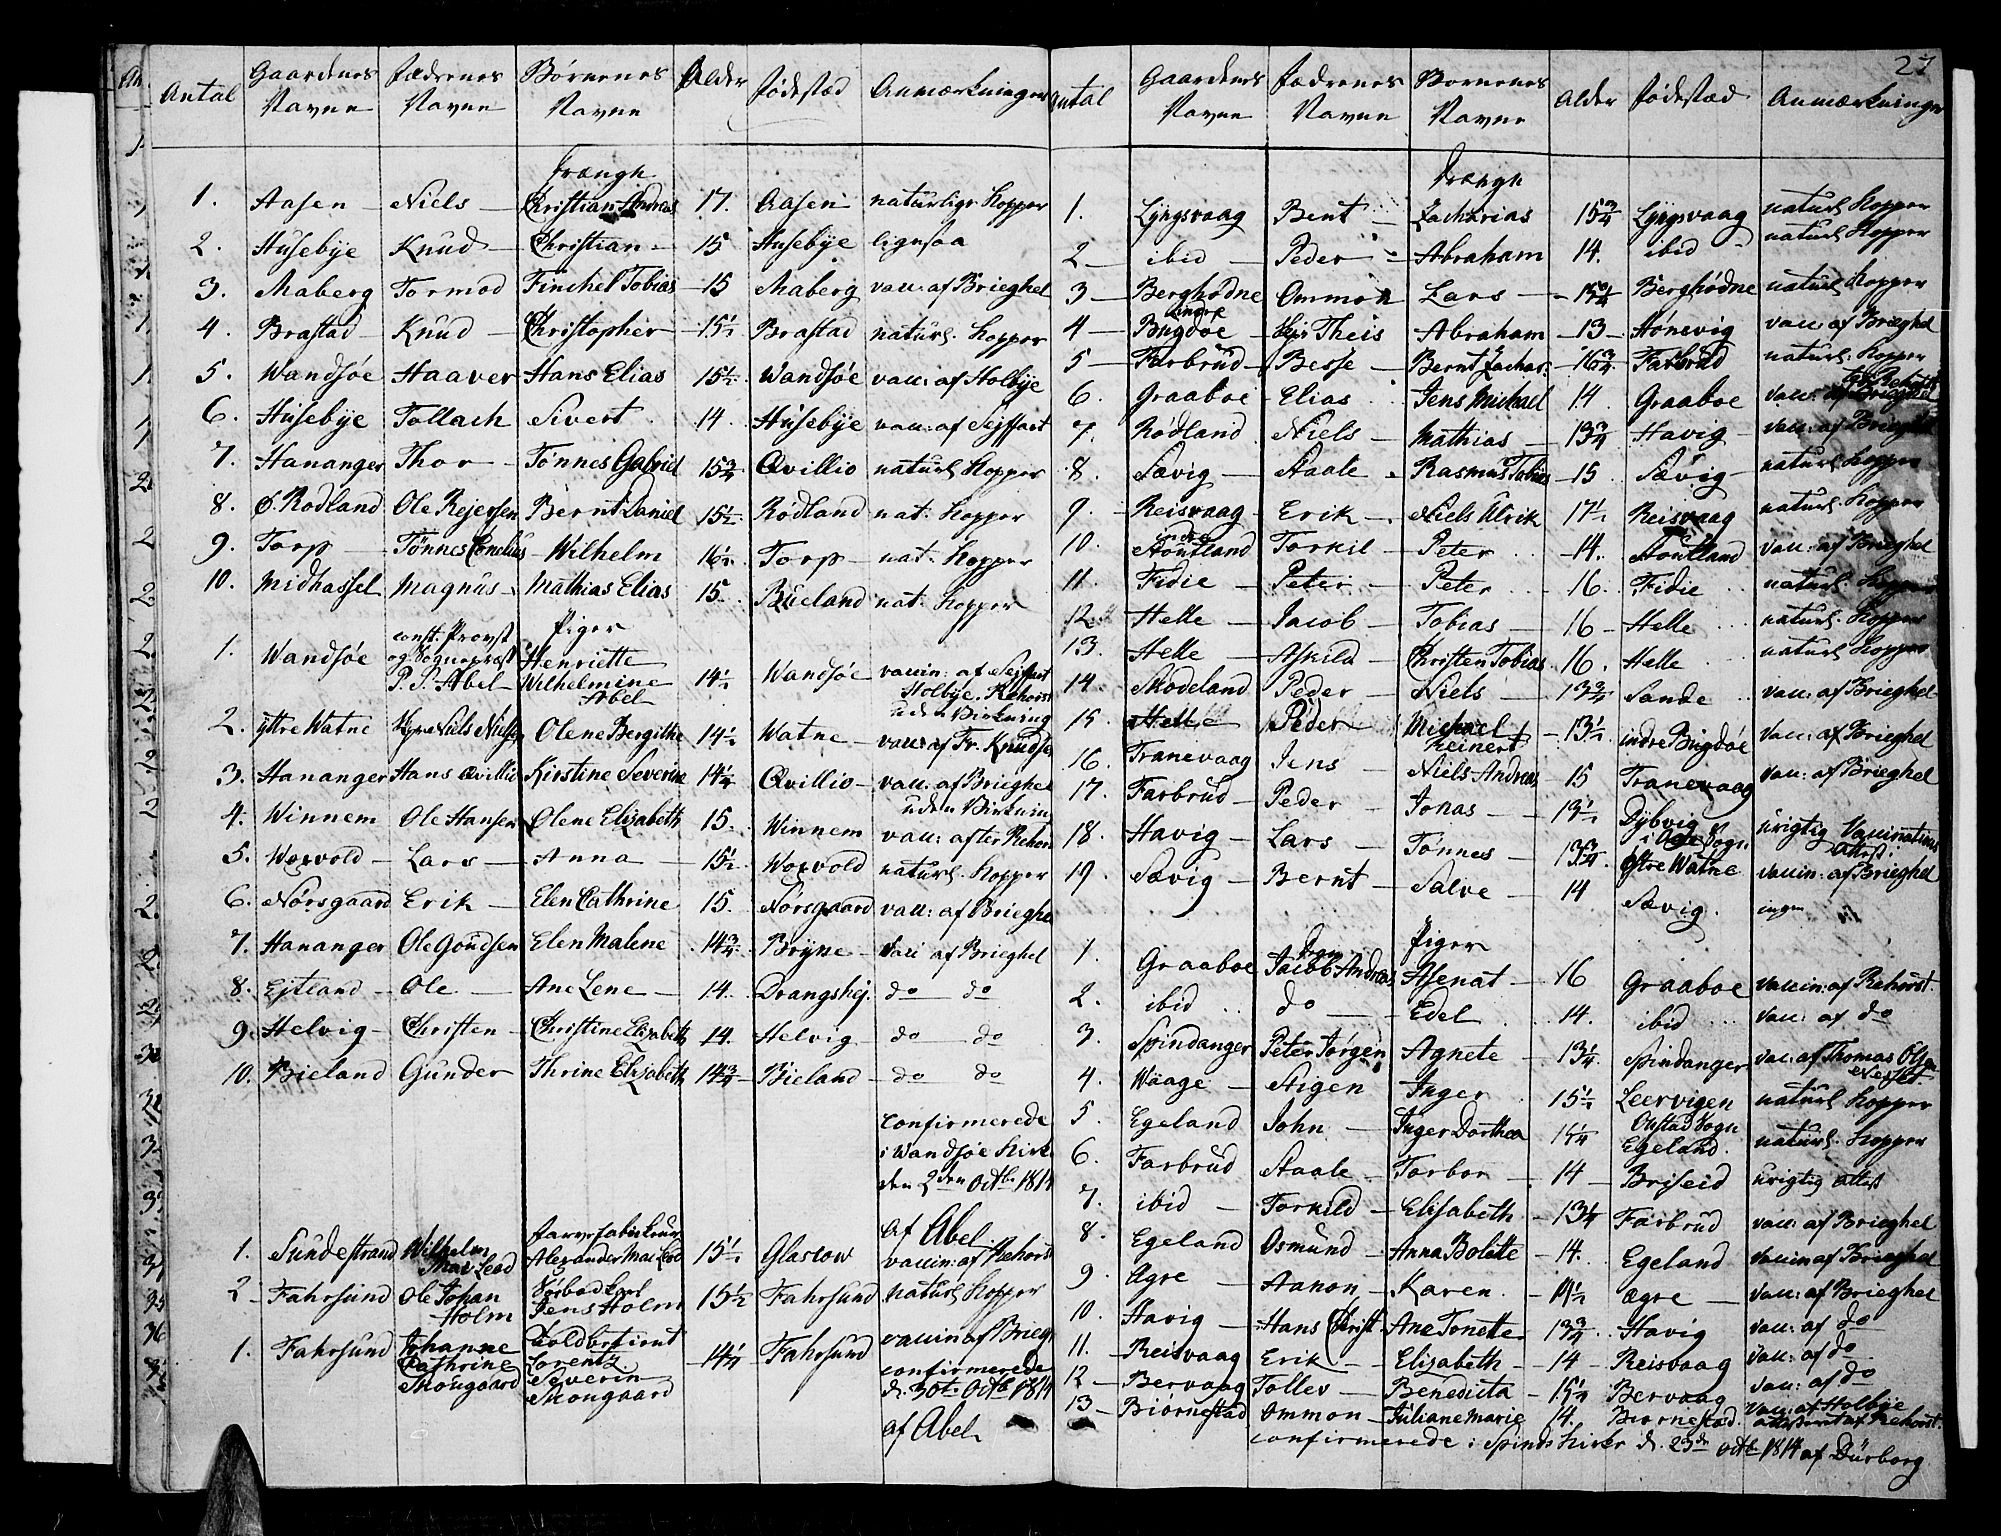 27
Antal | Gaardenes Navne | Fædrenes Navne | Børnenes Navne | Alder | Fødestæd | Anmærkninger
Drænge
1. Aasen – Niels – Christian Andreas 17. Aasen naturlige Kopper
2. Husebÿe Knud – Christian – 15 Husebÿe ligesaa
3. Maberg Tormod Finchel Tobias – 15 Maberg vacc: af Brieghel
4. Brastad – Knud – Christopher – 15½ Brastad naturl. Kopper
5. Wandsøe Haaver Hans Elias 15½. Wandsøe vacc: af Holbÿe
6. Husebÿe Tollach Sivert 14 Husebÿe vacc: af Seyffart
7. Hananger Thor – Tønnes Gabriel 15¾ Qvillio naturl. Kopper
8. Ø. Rødland Ole Rejersen Bernt Daniel 15½ Rødland nat. Kopper
9. Torp – Tønnes Cornelius – Wilhelm 16½ Torp – nat. Kopper
10. Midhassel Magnus – Mathias Elias 15. Bueland nat. Kopper
Piger
1. Wandsøe const. Provst og Sognepræst P. P. Abel – Henriette Wilhelmine Abel 14½ Wandsøe vaccin: af Seyffart Holbÿe, Rehorst uden Virkning
2. Ÿttre Watne Niels Nielsen Olene Bergithe 14½ Watne – vacc: af Fr. Knudsen
3. Hananger Hans Qvillio Kirstine Severine 14½ Qvillio – vacc: af Brieghel uden Virkning
4. Winnem Ole Hansen Olene Elizabeth 15. Winnem vacc: efter Rehorst
5. Worvold – Lars – Anna – 15½ Worvold naturl. Kopper
6. Nørsgaard Erik – Elen Cathrine 15. Nørsgaard vacc: af Brieghel
7. Hananger Ole Goudsen Elen Malene 14¾ Brÿne – vacc: af Brieghel
8. Ejtland – Ole – Ane Lene – 14. Drangshej. do do
9. Helvig – Christen – Christine Elizabeth 14. Helvig do do
10. Bieland Gunder Thrine Elizabeth 14¾ Bieland – do do
confirmerede
i Wandsøe Kirke
den 2den Octbr 1814
af Abel.
1. Sundestrand Wilhelm Mac Leod Alexander Mac Leod 15½ Glascow vaccin: af Rehorst
2 – Fahrsund Ole Johan Holm Jens Holm 15½ Fahrsund naturl. Kopper
1. Fahrsund Johanne Cathrine Skougaard Lorentz Severin Skougaard – 14¼ Fahrsund vaccin af Brieg
confirmerede
d. 30te Octbr 1814
af Abel
Antal | Gaardenes Navne | Fædrenes Navne | Børnenes Navne | Alder | Fødestæd | Anmærkninger
Drænge
1. Lÿngsvaag Bent – Zacharias 15¾ Lÿngsvaag naturl. Kopper
2 – ibid – Peder – Abraham 14. ibid – naturl. Kopper
3 – Berghødne Ommon Lars – Berghødne naturl. Kopper
4 – indre Bugdøe Theis Abraham – 13 – Hønevig vacc: af Brieghel
5 – Farbrud – Besse – Bernt Zachar. – 16¾ Farbrud naturl. Kopper
6. Graaboe – Elias Jens Michael 14 Graaboe vacc: af Rehorst
7. Rødland Niels – Mathias – 13¾ Havig – vacc: af Brieghel
8. Sævig – Staale – Rasmus Tobias – 15 Sævig – naturl. Kopper
9. Reisvaag – Erik – Niels Ulrik 17½ Reisvaag naturl. Kopper
10. indre Stoutland Torkil – Peter – 14. Stoutland vacc: af Brieghel
11. Fidie – Peter – Peter – 16. Fidie naturl. Kopper
12. Helle – Jacob – Tobias – 16 – Helle naturl. Kopper
13. Helle – Askild – Christen Tobias. 16. Helle naturl. Kopper
14. Skodeland Peder – Niels – 13¾ Sande vacc: af Brieghel
15 Helle Peder – Michael Reinert – 13½ indre Bugdøe vacc: af Brieghel
16. Tranevaag Jens – Niels Andreas 15 Tranevaag vacc: af Brieghel
17. Farbrud – Peder – Jonas – 13½ Dÿbvig i Sogn urigtig Vaccinations Attest
18. Havig – Lars – Tønnes – 13¾ Østre Watne vaccin: af Brieghel
19. Sævig – Bernt – Salve – 14 Sævig. ingen
Piger
1. Graaboe Jacob Andreas Asenat – 16 Graaboe vaccin: af Rehorst.
2. ibid do – Edel 14. ibid vacc: af do
3. Spindanger Peter Jørgen Agnete – 13¼ Spindanger vac: af Thomas Olsen
4. Waage – Stigen Inger 15½ Leervigen naturl. Kopper
5. Egeland John – Inger Dorthea 15¼ Egeland. naturl. Kopper
6. Farbrud Staale – Torbor – 14 – Briseid urigtig Attest
7. ibid – Torkild – Elisabeth – 13¼ Farbrud vacc: af Brieghel
8. Egeland Osmund – Anna Bolette – 14. Egeland vaccin af Brieghel
9. Agre – Aanon – Karen. – 14½ Agre – vacc: af Brieghel
10. Havig – Hans Christ. Ane Tonette. 13¾ Havig vacc: af do
11. Reisvaag Erik – Elizabeth – 14 – Reisvaag vacc: af do
12 – Bervaag Tollev – Benedicta – 15¼ Bervaag vacc: af do
13 – Biørnestad Ommon – Juliane Marie 14. Biørnestad. vacc: af Holbÿe attesteret af Rehorst.
confirmerede i Spinds Kirke d. 23de Octbr 1814 af Dürborg